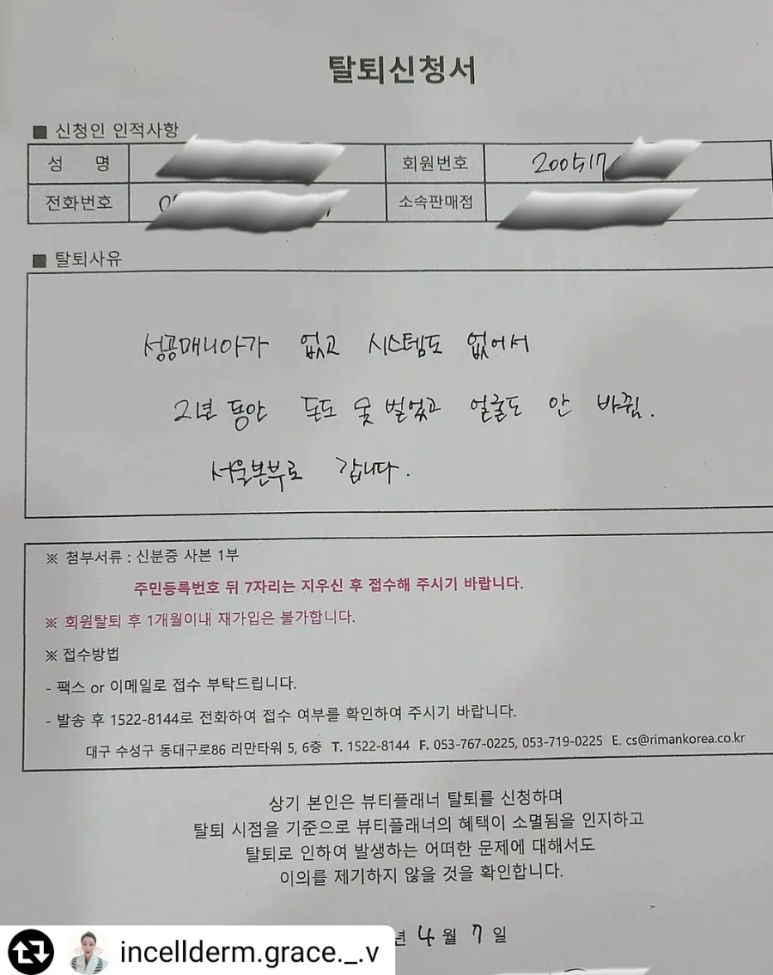 탈퇴신청서
■ 신청인 인적사항
성 명 회원번호 200517
전화번호 0 소속판매점
■ 탈퇴사유
성공매니아가 없고 시스템도 없어서
2년 동안 돈도 못 벌었고 얼굴도 안 바뀜.
서울본부로 갑니다.
※ 첨부서류 : 신분증 사본 1부
주민등록번호 뒤 7자리는 지우신 후 접수해 주시기 바랍니다.
※ 회원탈퇴 후 1개월이내 재가입은 불가합니다.
※ 접수방법
- 팩스 or 이메일로 접수 부탁드립니다.
- 발송 후 1522-8144로 전화하여 접수 여부를 확인하여 주시기 바랍니다.
대구 수성구 동대구로86 리만타워 5, 6층 T. 1522-8144 F. 053-767-0225, 053-719-0225 E. cs@rimankorea.co.kr
상기 본인은 뷰티플래너 탈퇴를 신청하며
탈퇴 시점을 기준으로 뷰티플래너의 혜택이 소멸됨을 인지하고
탈퇴로 인하여 발생하는 어떠한 문제에 대해서도
이의를 제기하지 않을 것을 확인합니다.
년 4월 7일
incellderm.grace._.v